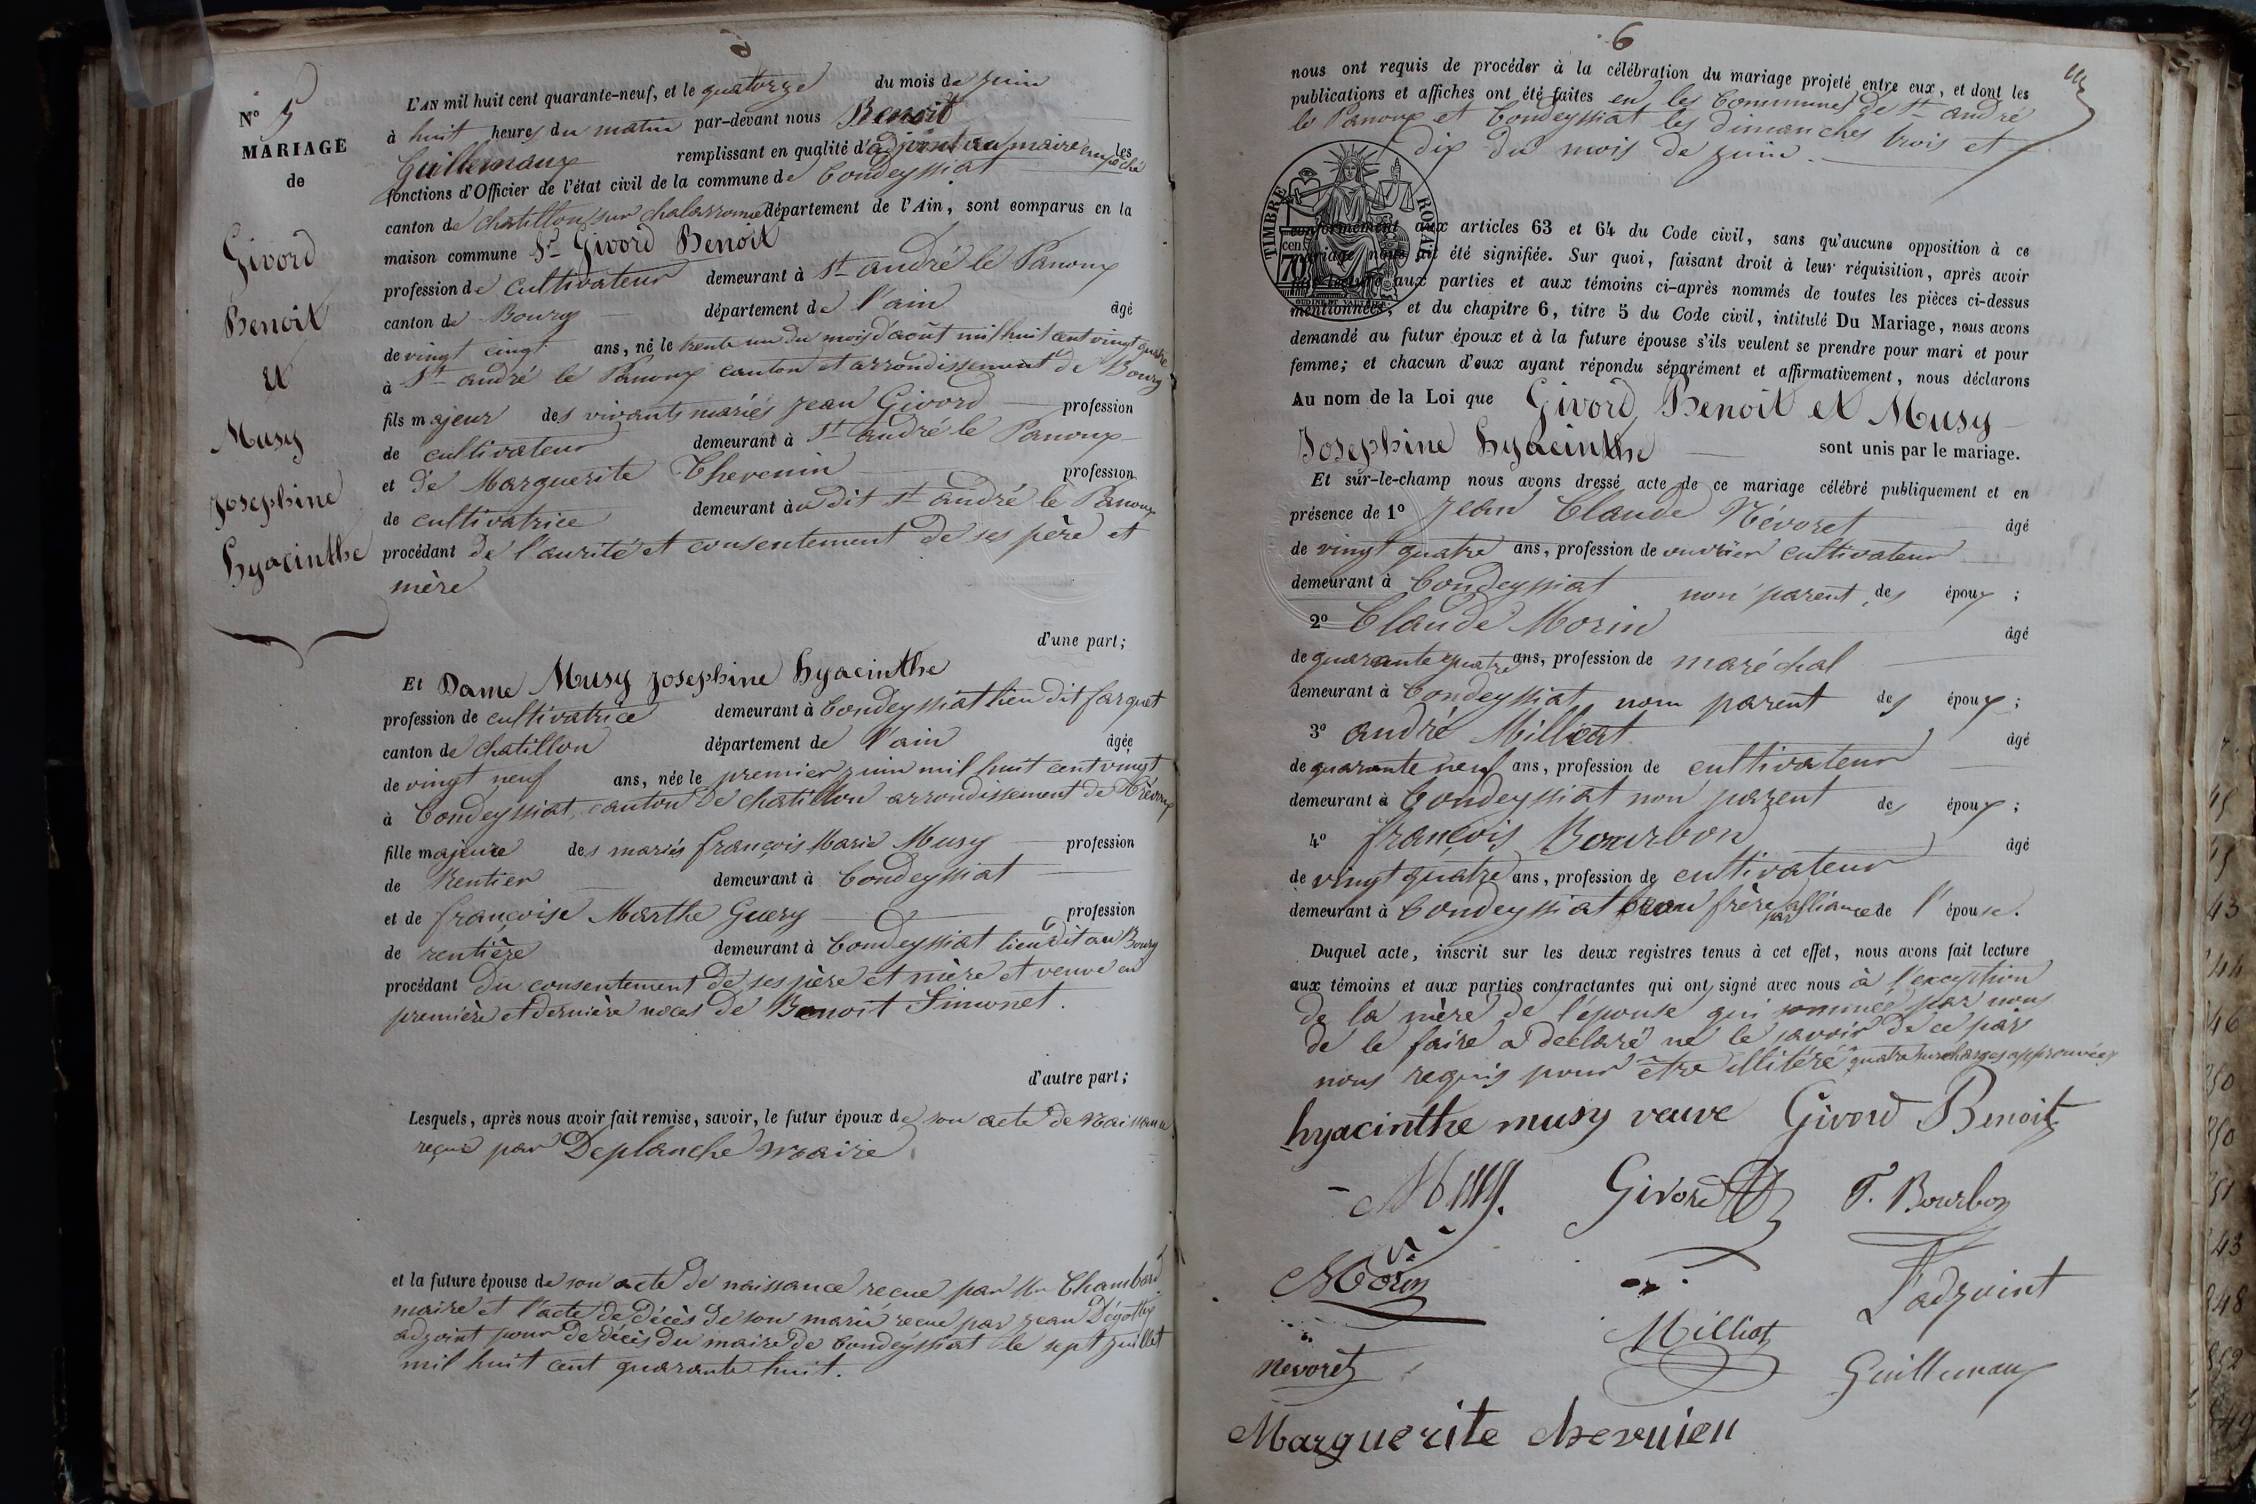 N° 5
MARIAGE
de
Givord
Benoit
et
Musy
Josephine
hyacinthe
L'AN mil huit cent quarante-neuf, et le quatorze du mois de juin
à huit heures du matin par-devant nous Benoit
Guillemaux remplissant en qualité d'adjoint au maire empeché les
fonctions d'Officier de l'état civil de la commune de Condeyssiat
canton de chatillon sur chalaronne département de l'Ain, sont comparus en la
maison commune Sr Givord Benoit
profession de cultivateur demeurant à St andré le Panoux
canton de Bourg département de l'ain âgé
de vingt cinq ans, né le trente un du mois d'août mil huit cent vingt quatre
à St andré le Panoux canton et arrondissement de Bourg
fils majeur des vivants mariés jean Givord profession
de cultivateur demeurant à St andré le Panoux
et de Marguerite Thevenin profession
de cultivatrice demeurant àu dit St andré le Panoux
procédant de l'aurité et consentement de ses père et
mère
d'une part;
Et Dame Musy josephine hyacinthe
profession de cultivatrice demeurant à Condeyssiat lieu dit farguet
canton de chatillon département de l'ain âgée
de vingt neuf ans, née le premier juin mil huit cent vingt
à Condeyssiat, canton de chatillon arrondissement de Trévoux
fille majeure des mariés françois Marie Musy profession
de Rentier demeurant à Condeyssiat
et de françoise Marthe Guery profession
de rentière demeurant à Condeyssiat lieu dit au Bourg
procédant du consentement de ses père et mère et veuve en
première et dernière noces de Benoit Simonet.
d'autre part;
Lesquels, après nous avoir fait remise, savoir, le futur époux de son acte de naissance
reçue par Deplanche maire
et la future épouse de son acte de naissance reçue par Mr Chambard
maire et l'acte de décès de son marié reçue par jean
adjoint pour de décès du maire de Condeyssiat le sept juillet
mil huit cent quarante huit.
6
nous ont requis de procéder à la célébration du mariage projeté entre eux, et dont les
publications et affiches ont été faites en les Communes de St andré
le Panoux et Condeyssiat les dimanches trois et
dix du mois de juin.
TIMBRE ROYAL
70 cen.
conformément aux articles 63 et 64 du Code civil, sans qu'aucune opposition à ce
mariage nous ait été signifiée. Sur quoi, faisant droit à leur réquisition, après avoir
fait lecture aux parties et aux témoins ci-après nommés de toutes les pièces ci-dessus
mentionnées, et du chapitre 6, titre 5 du Code civil, intitulé Du Mariage, nous avons
demandé au futur époux et à la future épouse s'ils veulent se prendre pour mari et pour
femme; et chacun d'eux ayant répondu séparément et affirmativement, nous déclarons
Au nom de la Loi que Givord, Benoit et Musy
Josephine hyacinthe sont unis par le mariage.
Et sur-le-champ nous avons dressé acte de ce mariage célébré publiquement et en
présence de 1° Jean Claude Névoret âgé
de vingt quatre ans, profession de ouvrier cultivateur
demeurant à Condeyssiat non parent des époux;
2° Claude Morin âgé
de quarante quatre ans, profession de maréchal
demeurant à Condeyssiat nom parent des époux;
3° andré Milliat âgé
de quarante neuf ans, profession de cultivateur
demeurant à Condeyssiat non parent des époux;
4° françois Bourbon âgé
de vingt quatre ans, profession de cultivateur
demeurant à Condeyssiat beau frère par alliance de l'épouse.
Duquel acte, inscrit sur les deux registres tenus à cet effet, nous avons fait lecture
aux témoins et aux parties contractantes qui ont signé avec nous à l'exception
de la mère de l'épouse qui sommée par nous
de le faire a declaré ne le savoir de ce par
nous requis pour être illitéré quatre surcharges approuvées
hyacinthe musy veuve Givord Benoit
Musy. Givord F. Bourbon
Morin L'adjoint
Milliat
nevoret Guillemaux
Marguerite chevnien